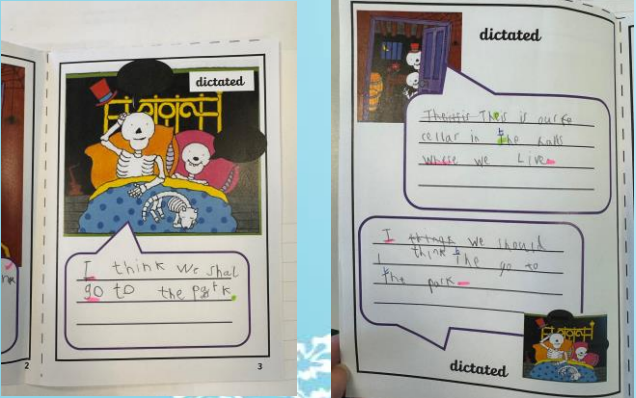 dictated
I think we shal
go to the park.
2
3
dictated
This is our
cellar in the
where we Live
I think we should
think the go to
the park
dictated